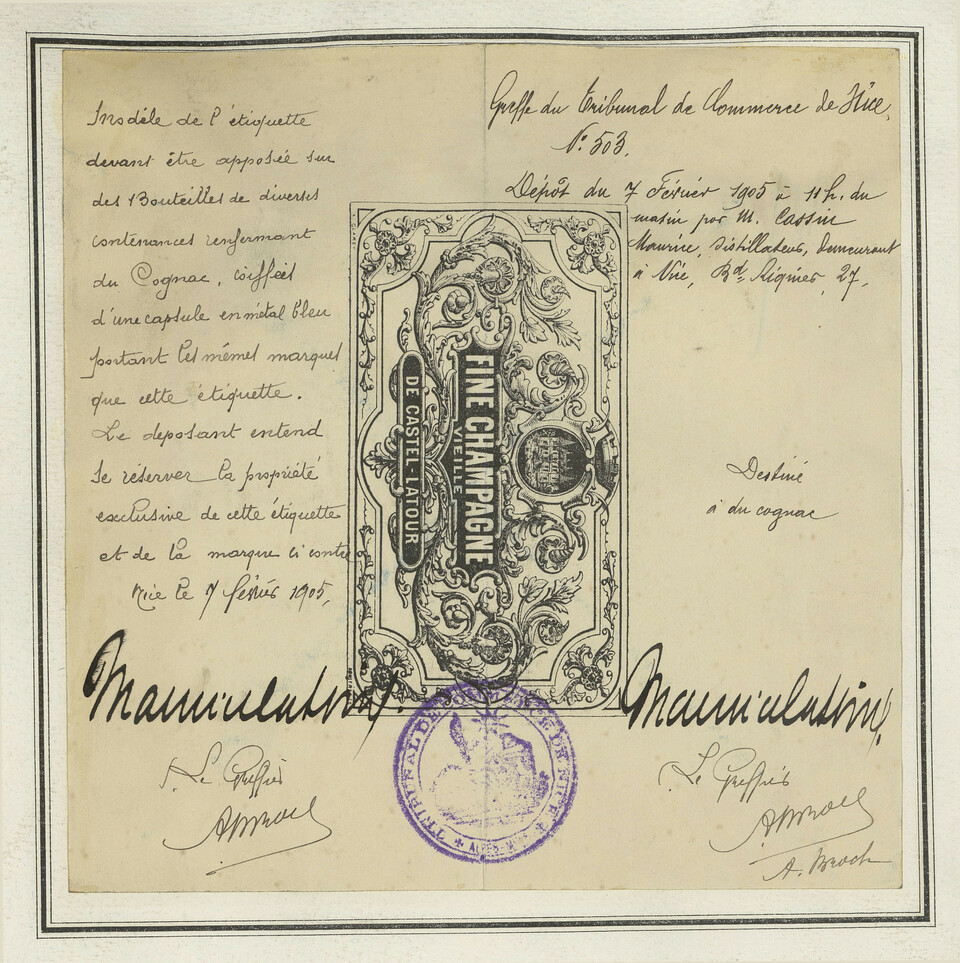 Modèle de l'étiquette
devant être apposée sur
des Bouteilles de diverses
contenances renfermant
du Cognac, coiffées
d'une capsule en métal bleu
portant les mêmes marques
que cette étiquette.
Le deposant entend
se réserver la propriété
exclusive de cette étiquette
et de la marque ci contre
Nice le 7 février 1905,
Le Greffier
Greffe du Tribunal de Commerce de Nice,
N° 503.
Dépôt du 7 Février 1905 à 11 h. du
matin par M. Cassin
Maurice, Distillateur, Demeurant
à Nice, Bd. Riquier, 27,
Destiné
à du cognac
Le Greffier
A. Broch
FINE CHAMPAGNE
VIEILLE
DE CASTEL-LATOUR
TRIBUNAL DE COMMERCE DE NICE